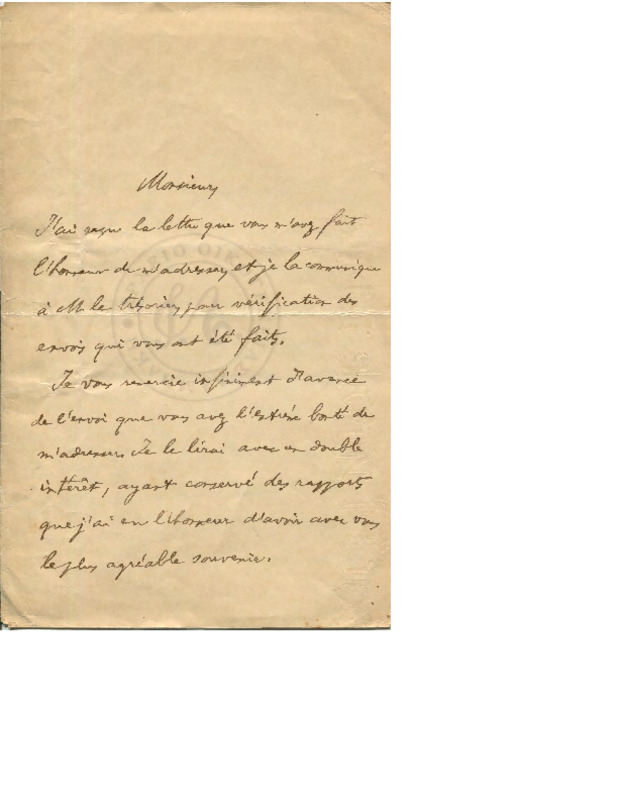 Monsieur,
J'ai reçu la lettre que vous m'avez fait
l'honneur de m'adresser, et je la communique
à M. le trésorier pour vérification des
envois qui vous ont été faits.
Je vous remercie infiniment d'avance
de l'envoi que vous avez l'extrême bonté de
m'adresser. Je le lirai avec un double
intérêt, ayant conservé des rapports
que j'ai eu l'honneur d'avoir avec vous
le plus agréable souvenir.